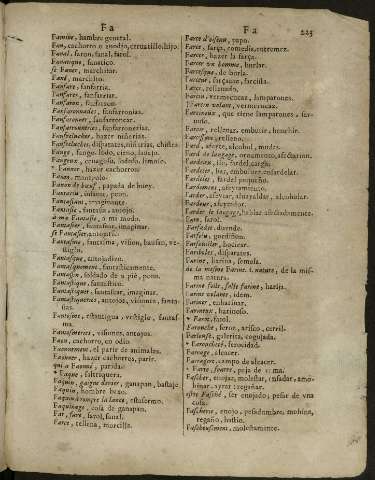 Fa
Famine, hambre general.
Fan, cachorro o anodio, cervatillo, hijo.
Fanal, faron, fanal, farol.
Fanatique, fanatico.
se Faner, marchitar.
Fané, marchito.
Fanfare, fanfarria.
Fanfares, fanfarrias.
Fanfaron, fanfarron.
Fanfaronnades, fanfarronias.
Fanfaronner, fanfarronear.
Fanfaronneries, fanfarronerias.
Fanfrelucher, hazer niñerias.
Fanfreluches, disparates, niñerias, chistes
Fange, fango, lodo, cieno, lodo.
Fangeux, cenagoso, lodoso, limoso.
Fanner, hazer cachorros
Fanon, manipolo
Fanon de bœuf, papada de buey.
Fantasin, infante, peon.
Fantasiant, imaginante.
Fantasie, fantasia, antojo.
à ma Fantasie, a mi modo.
Fantasier, fantasear, imaginar.
se Fantasier, antojarse.
Fantasme, fantasma, vision, bausan, vestiglo.
Fantasque, antojadizo.
Fantasquement, fantasticamente.
Fantasin, soldado de a pie, peon.
Fantastique, fantastico.
Fantastiquer, fantasear, imaginar.
Fantastiqueries, antojos, visiones, fantasias.
Fantosme, estantigua, vestiglo, fantasma.
Fantosmeries, visiones, antojos.
Faon, cachorro, en odio
Faonnement, el parir de animales.
Faonner, hazer cachorros, parir.
qui a Faonné, parida
Faque, faltriquera.
Faquin, gaigne denier, ganapan, bastaje
Faquin, hombre bexo.
Faquin à rompre la lance, estafermo.
Faquinage, cosa de ganapan.
Far, faré, farol, fanal.
Farce, rellena, morcilla.
Fa
225
Farce d'oiseau, papo.
Farce, farça, comedia, entremes.
Farcer, hazer la farça.
Farcer un homme, burlar.
Farcesque, de burla.
Farceur, farçante, farsista.
Farce, rellenado.
Farcin, vermecucar, lamparones.
Farcin volant, vermecucas.
Farcineux, que tiene lamparones, sarnoso.
Farcir, rellenar, embutir, henchir.
Farcissure, relleno.
Fard, afeyte, alcohol, mudas.
Fard de langage, ornamento, afectacion.
Fardeau, lio, fardel, carga.
Fardeler, liar, embalar, enfardelar.
Fardelet, fardel pequeño.
Fardement, afeytamiento.
Farder, afeytar, alvayaldar, alcoholar.
Fardeur, afeytador.
Farder le langage, hablar afectadamente.
Fare, farol.
Farfadet, duende.
Farfelu, gordiflon.
Farfouiller, hocicar.
Fariboles, disparates.
Farine, harina, semola.
de la mesme Farine, i. nature, de la misma natura.
Farine folle, folle farine, harija.
Farine volante, idem.
Fariner, enharinar.
Farineux, harinoso.
Farot, farol.
Farouche, feroz, arisco, cerril.
Farouse, galerita, cogujada.
Faroucheté, ferocidad.
Farrage, alcacer.
Farragos, campo de alcacer.
Farte, foarre, paja de cama.
Fascher, enojar, molestar, enfadar, amohinar, ayrar, regañar.
estre Fasché, ser enojado; pesar de una cosa.
Fascherie, enojo, pesadumbre, mohina, regaño, hastio.
Fascheusement, molestamente.